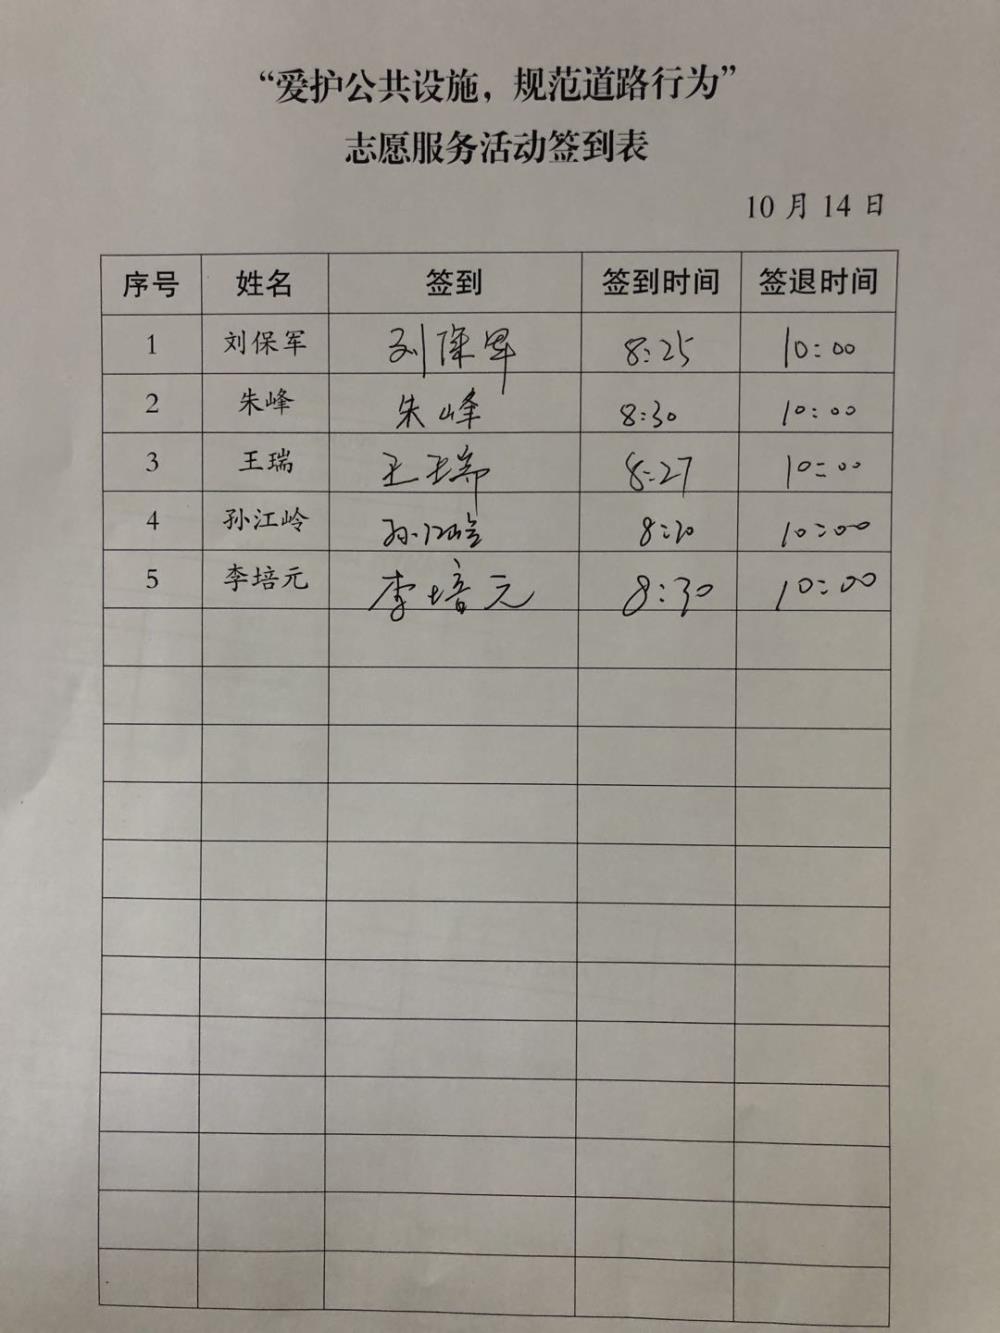 “爱护公共设施，规范道路行为”
志愿服务活动签到表
10 月 14 日
序号 姓名 签到 签到时间 签退时间
1 刘保军 刘保军 8:25 10:00
2 朱峰 朱峰 8:30 10:00
3 王瑞 王瑞 8:27 10:00
4 孙江岭 孙江岭 8:20 10:00
5 李培元 李培元 8:30 10:00